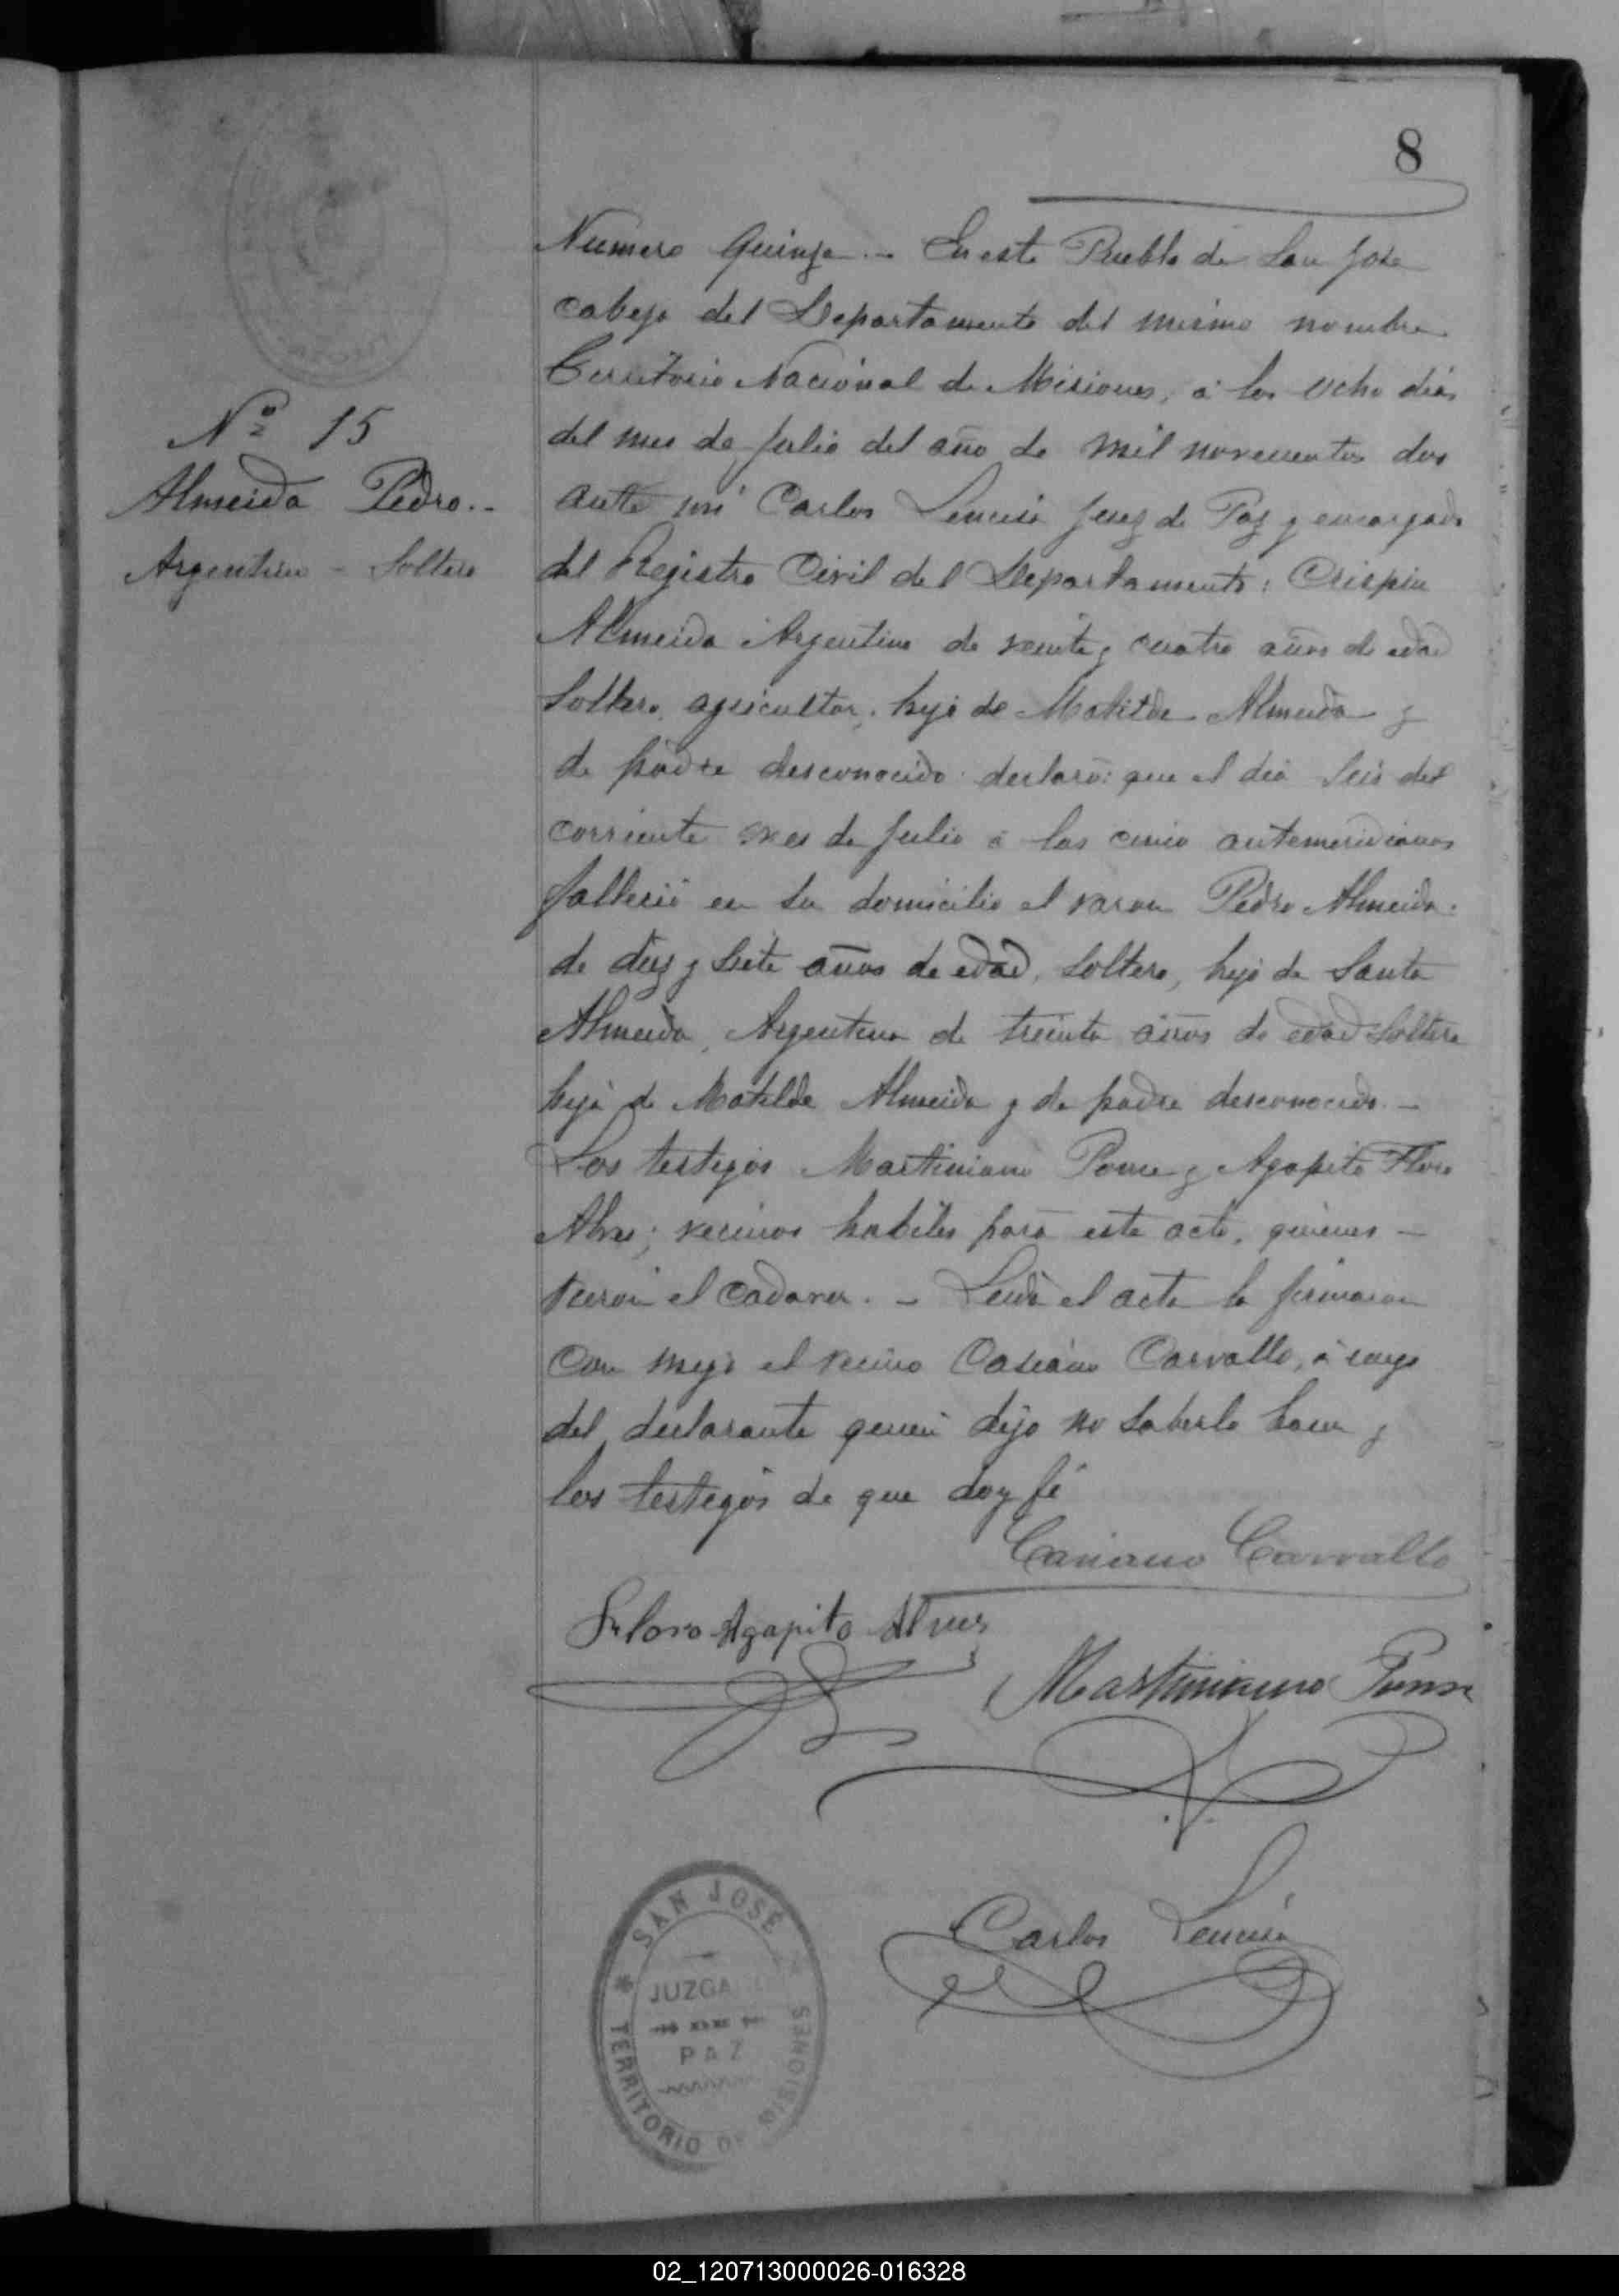 8
Numero Quinze.- En este Pueblo de San José
cabeza del Departamento del mismo nombre
Territorio Nacional de Misiones, á los ocho dias
del mes de Julio del año de mil novecientos dos
ante mí Carlos Juez de Paz y encargado
del Registro Civil del Departamento: Crispin
Almeida Argentino de veinte y cuatro años de edad
Soltero, agricultor, hijo de Matilde Almeida y
de padre desconocido declaró: que el dia seis del
corriente mes de Julio á las cinco antemeridianas
falleció en su domicilio el varon Pedro Almeida
de diez y siete años de edad, soltero, hijo de Santa
Almeida, Argentina de treinta años de edad Soltera
hija de Matilde Almeida y de padre desconocido.-
Los testigos Martiniano Ponse y Agapito Floro
Alves; vecinos habiles para este acto, quienes -
vieron el cadaver. - Leida el acta la firmaron
con migo el vecino Casiano Carvallo, á ruego
del declarante quien dijo no saberlo hacer y
los testigos de que doy fé
Nº 15
Almeida Pedro..
Argentino - Soltero
Casiano Carvallo
Floro Agapito Alves
Martiniano Ponse
Carlos
SAN JOSÉ
JUZGA
PAZ
TERRITORIO DE MISIONES
02_120713000026-016328